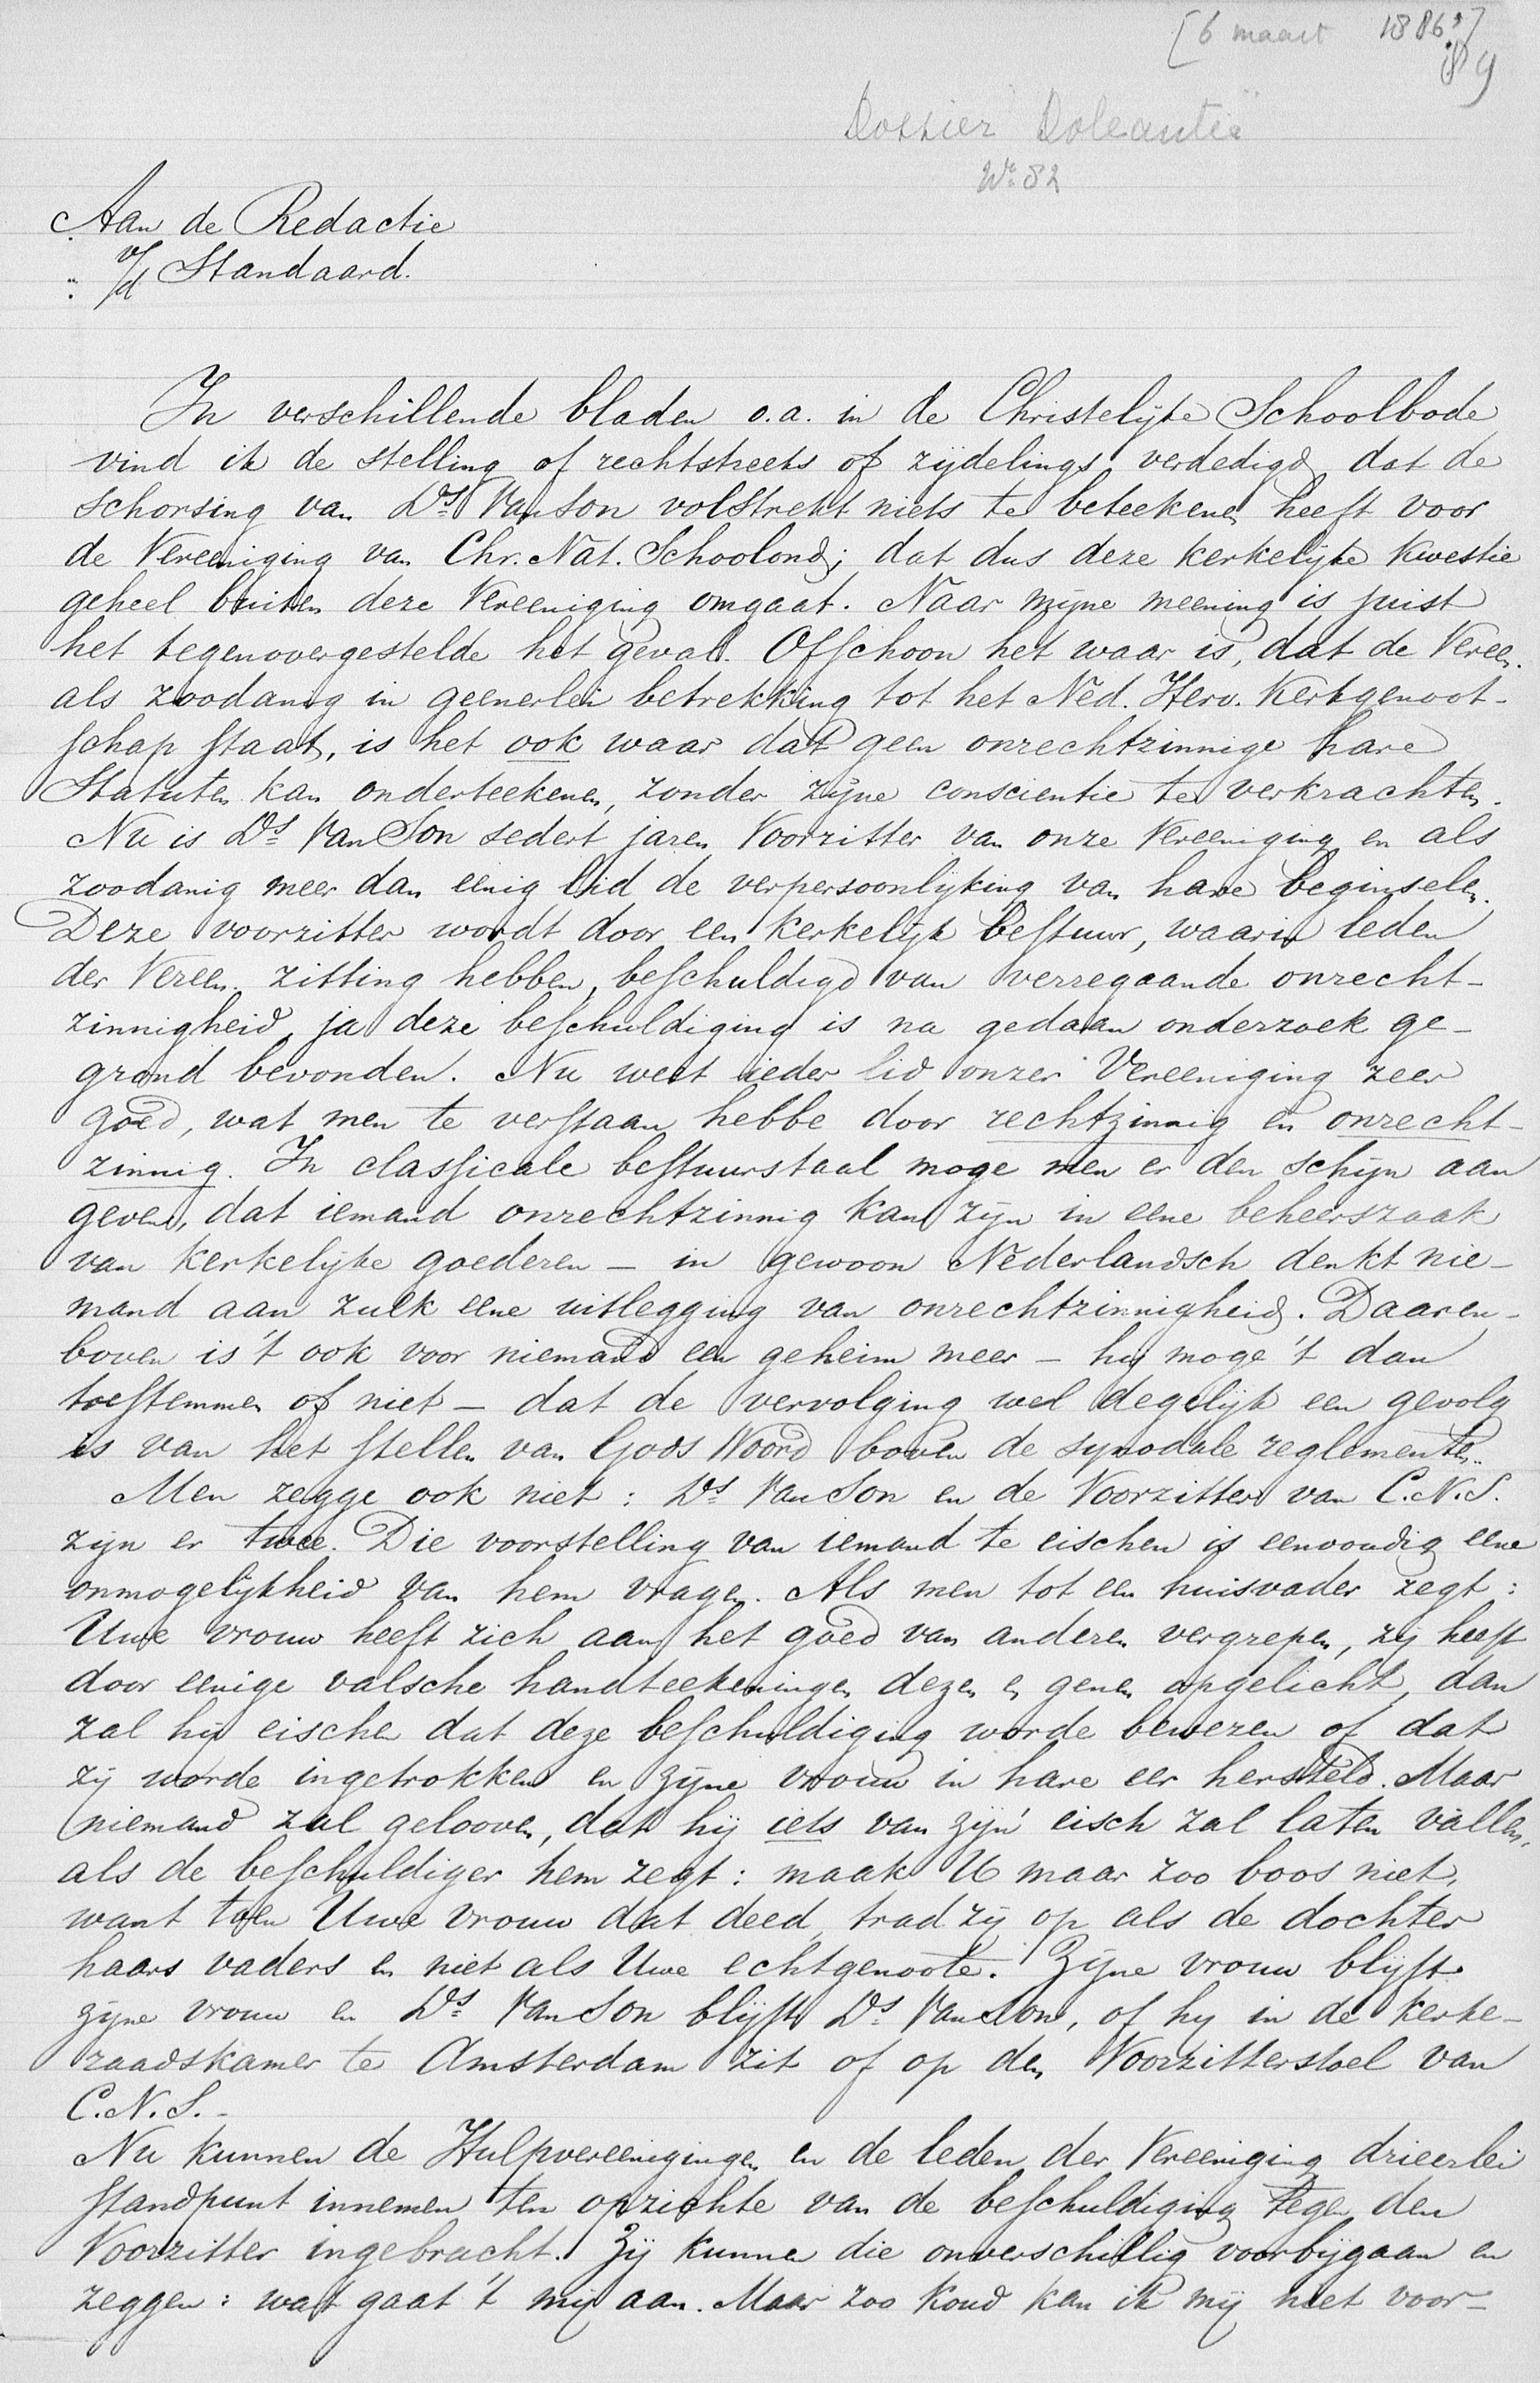 [6 maart 1886?]
89
Dossier "Doleantie"
No 82
Aan de Redactie
v/d Standaard.
In verschillende bladen o.a. in de Christelijke Schoolbode
vind ik de stelling of rechtstreeks of zijdelings verdedigd dat de
schorsing van Ds Van Son volstrekt niets te beteekenen heeft voor
de Vereeniging van Chr. Nat. Schoolond; dat dus deze kerkelijke kwestie
geheel buiten deze Vereeniging omgaat. Naar mijne meening is juist
het tegenovergestelde het geval. Ofschoon het waar is, dat de Vereen.
als zoodanig in geenerlei betrekking tot het Ned. Herv. Kerkgenoot-
schap staat, is het ook waar dat geen onrechtzinnige hare
Statuten kan onderteekenen, zonder zijne conscientie te verkrachten.
Nu is Ds Van Son sedert jaren Voorzitter van onze Vereeniging en als
zoodanig meer dan eenig lid de verpersoonlijking van hare beginselen.
Deze voorzitter wordt door een kerkelijk bestuur, waarin leden
der Vereen. zitting hebben, beschuldigd van verregaande onrecht-
zinnigheid, ja deze beschuldiging is na gedaan onderzoek ge-
grond bevonden. Nu weet ieder lid onzer Vereeniging zeer
goed, wat men te verstaan hebbe door rechtzinnig en onrecht-
zinnig. In classicale bestuurstaal moge men er den schijn aan
geven, dat iemand onrechtzinnig kan zijn in eene beheerszaak
van kerkelijke goederen - in gewoon Nederlandsch denkt nie-
mand aan zulk eene uitlegging van onrechtzinnigheid. Daaren-
boven is 't ook voor niemand een geheim meer - hij moge 't dan
toestemmen of niet - dat de vervolging wel degelijk een gevolg
is van het stellen van Gods Woord boven de synodale reglementen.
Men zegge ook niet: Ds Van Son en de Voorzitter van C.N.S.
zijn er twee. Die voorstelling van iemand te eischen is eenvoudig eene
onmogelijkheid van hem vragen. Als men tot een huisvader zegt:
Uwe vrouw heeft zich aan het goed van anderen vergrepen, zij heeft
door eenige valsche handteekeningen dezen en genen opgelicht, dan
zal hij eischen dat deze beschuldiging worde bewezen of dat
zij worde ingetrokken en zijne vrouw in hare eer hersteld. Maar
niemand zal gelooven, dat hij iets van zijn' eisch zal laten vallen,
als de beschuldiger hem zegt: maak U maar zoo boos niet,
want toen Uwe vrouw dat deed, trad zij op als de dochter
haars vaders en niet als Uwe echtgenoote. Zijne vrouw blijft
zijne vrouw en Ds Van Son blijft Ds Van Son, of hij in de kerke-
raadskamer te Amsterdam zit of op den Voorzittersstoel van
C.N.S. -
Nu kunnen de Hulpvereenigingen en de leden der Vereeniging drieerlei
standpunt innemen ten opzichte van de beschuldiging tegen den
Voorzitter ingebracht. Zij kunnen die onverschillig voorbijgaan en
zeggen: wat gaat 't mij aan. Maar zoo koud kan ik mij niet voor-